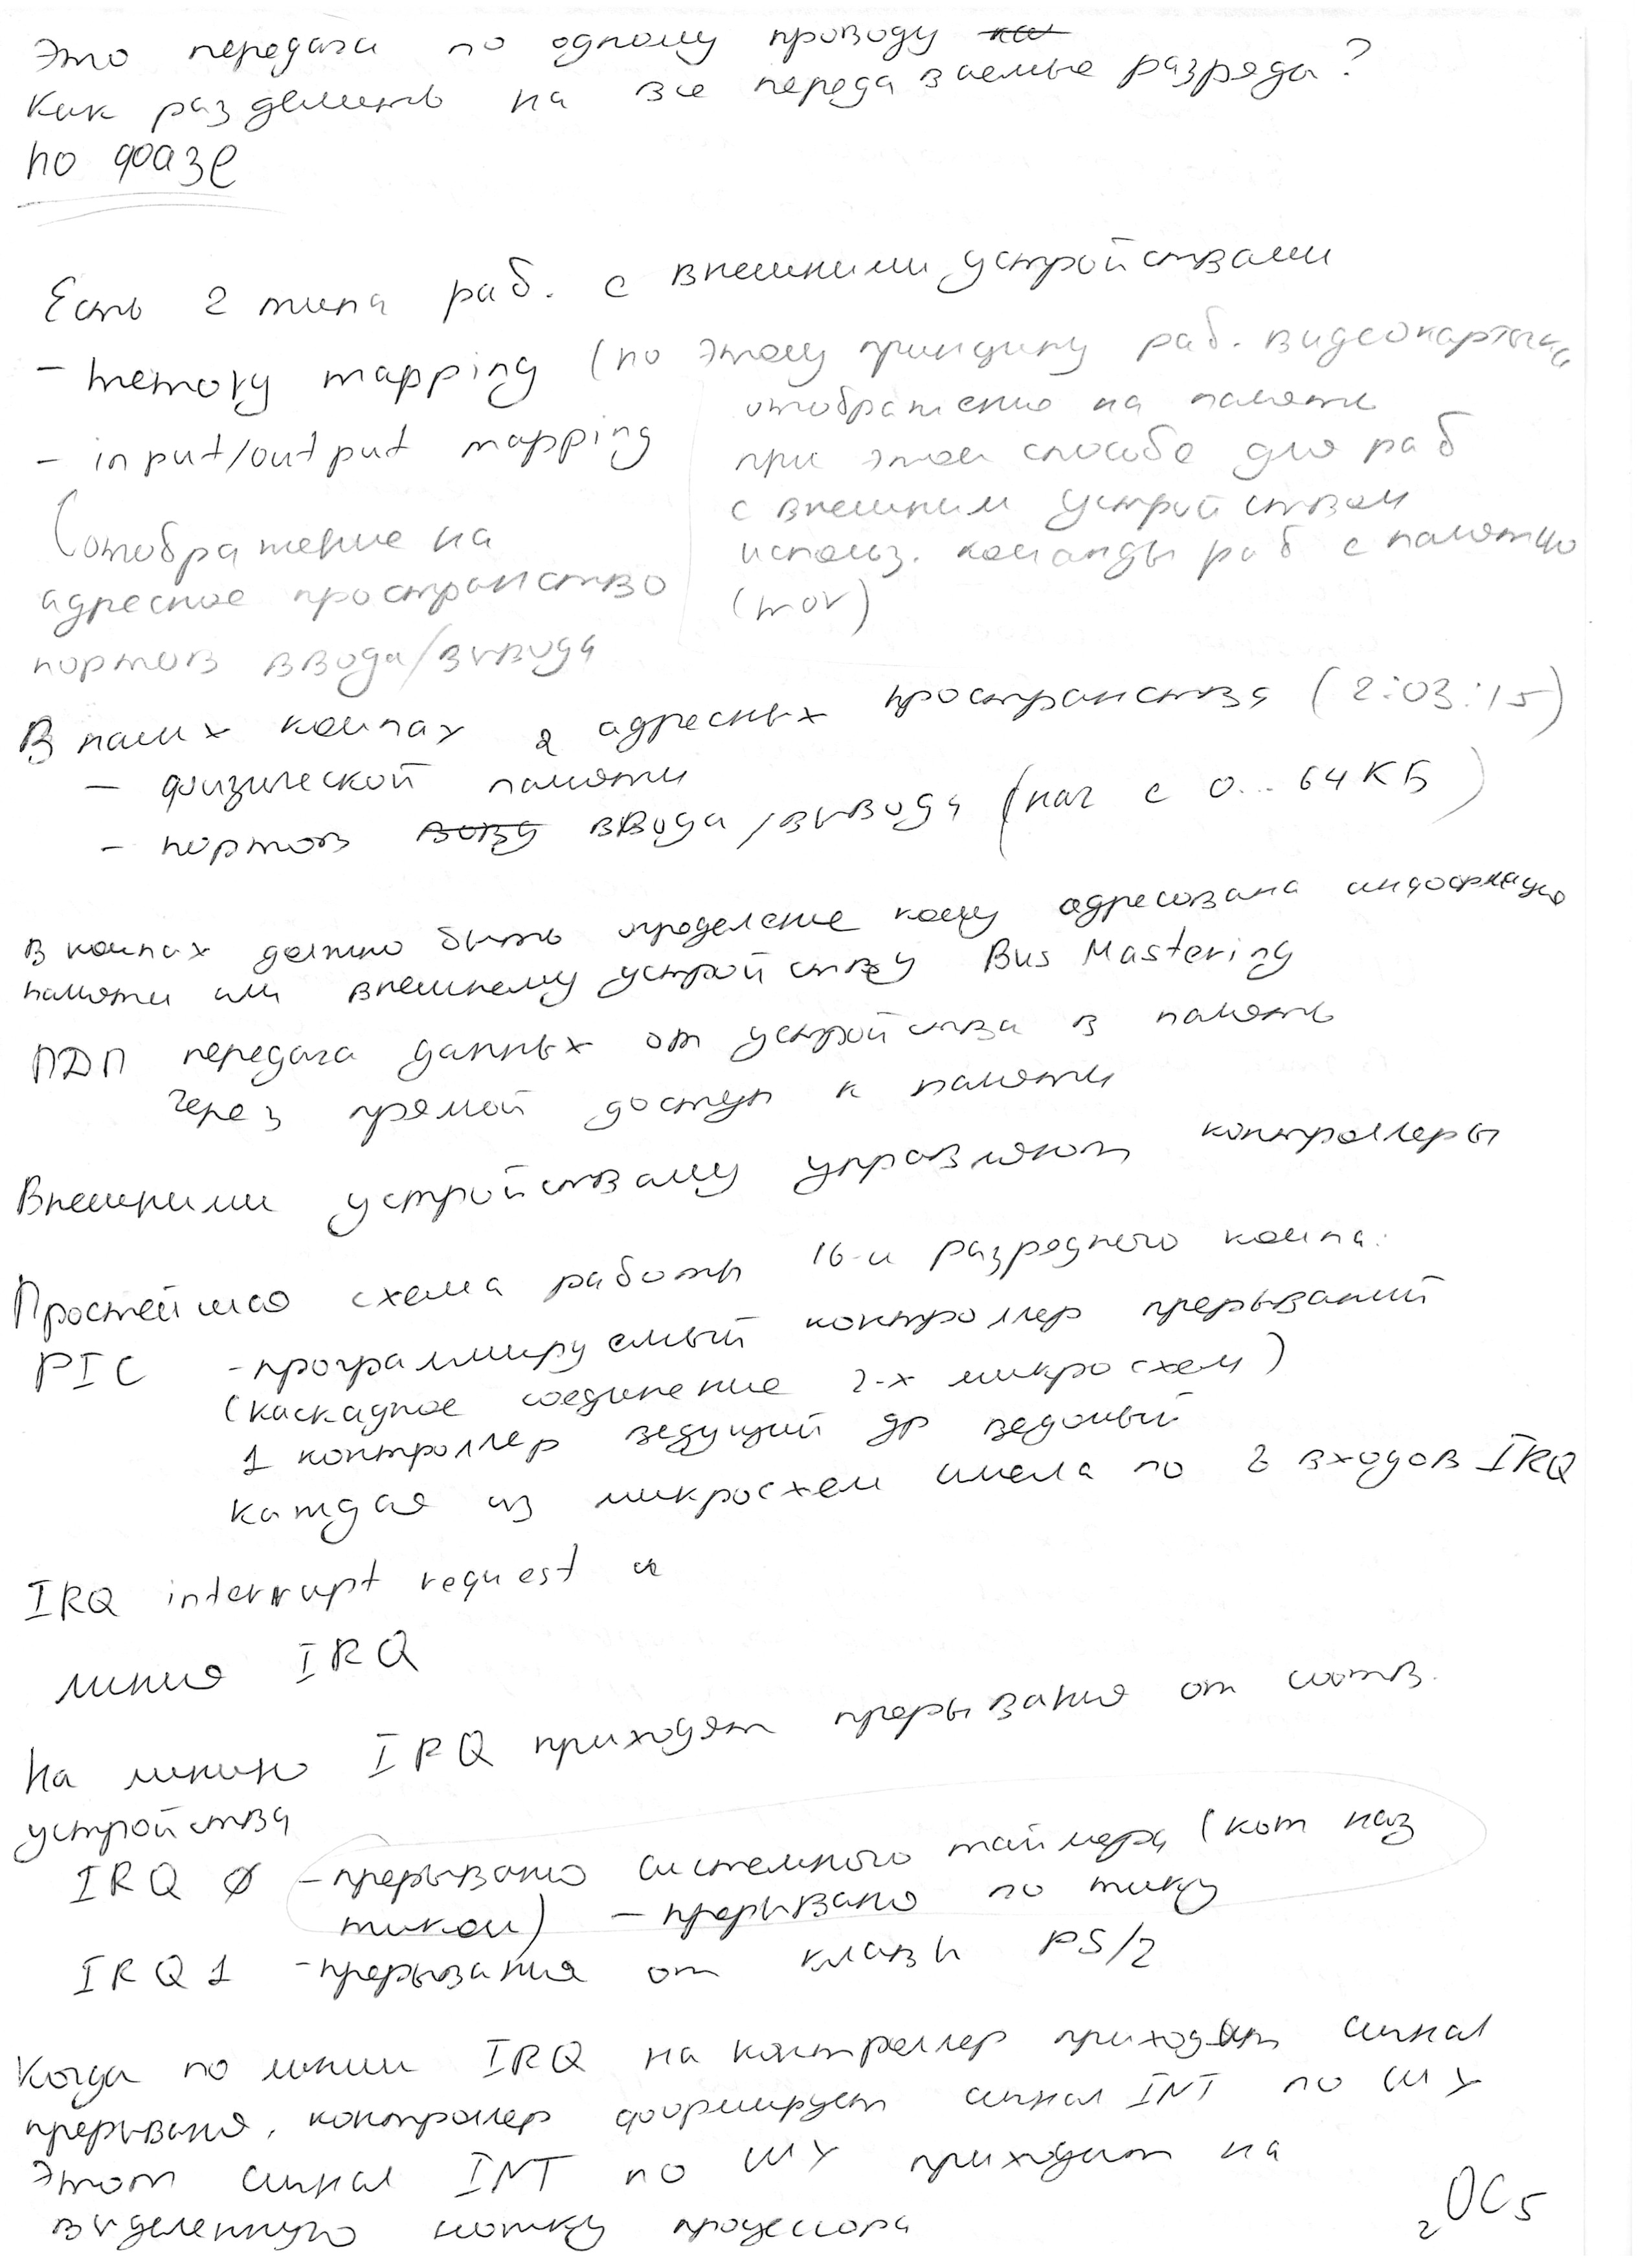 Это передача по одному проводу
Как разделить на все передаваемые разряды?
по фазе
Есть 2 типа раб. с внешними устройствами
- memory mapping (по этому принципу раб. видеокарты
отображение на память
при этом способе для раб
с внешним устройством
использ. команды раб с памятью
(mov)
- input/output mapping
(отображение на
адресное пространство
портов ввода/вывода
В наших компах 2 адресных пространства (2:03:15)
- физической памяти
- портов ввода/вывода (нач с 0... 64КБ)
в компах должно быть определение кому адресована информация
памяти или внешнему устройству Bus Mastering
ПДП передача данных от устройства в память
через прямой доступ к памяти
Внешними устройствами управляют контроллеры
Простейшая схема работы 16-и разрядного компа:
PIC - программируемый контроллер прерываний
(каскадное соединение 2-х микросхем)
1 контроллер ведущий др ведомый
каждая из микросхем имела по 8 входов IRQ
IRQ interrupt request
линия IRQ
На линию IRQ приходят прерывания от соотв.
устройства
IRQ 0 - прерывание системного таймера (кот наз
тиком) - прерывание по тику
IRQ 1 - прерывания от клавы PS/2
Когда по линии IRQ на контроллер приходит сигнал
прерывания, контроллер формирует сигнал INT по ШУ
Этот сигнал INT по ШУ приходит на
выделенную ножку процессора
2 ОС 5